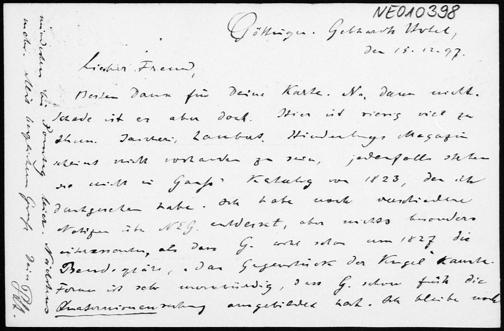 NE010398
Göttingen. Gebhards Hotel,
den 15.12.97.
Lieber Freund,
Besten Dank für Deine Karte. Na, dann nicht.
Schade ist es aber doch. Hier ist riesig viel zu
thun. Hindenburgs Magazin
scheint nicht vorhanden zu sein, jedenfalls stehen
sie nicht in Gauß' Katalog von 1823, den ich
durchgesehen habe. Ich habe noch verschiedene
Notizen über NEG. entdeckt, aber nichts besonders
interessantes, als dass G. wohl schon um 1827 die
das Gegenstück der Kugel kannte.
Ferner ist sehr merkwürdig, dass G. schon früh die
Quaternionenrechnung ausgebildet hat. Ich bleibe noch
mindestens bis Sonntag hier. Nächstens
mehr. Mit herzlichem Gruss
Dein